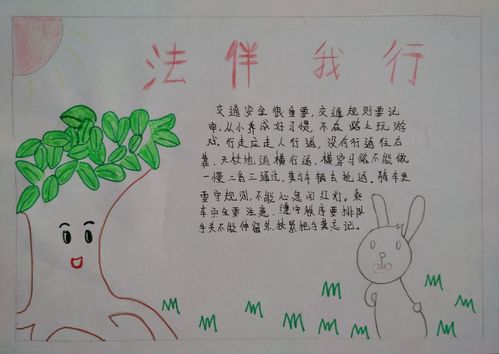 法伴我行
交通安全很重要,交通规则要记
牢,从小养成好习惯,不在路上玩游
戏。行走应走人行道,没有行道往右
靠,天桥地道横行道,横穿马路不能做
一慢二看三通过,莫与车辆去抢道。骑车更
要守规则,不能心急闯红灯。乘
车安全要注意,遵守秩序要排队
手头不能伸窗外,扶紧把手莫忘记。